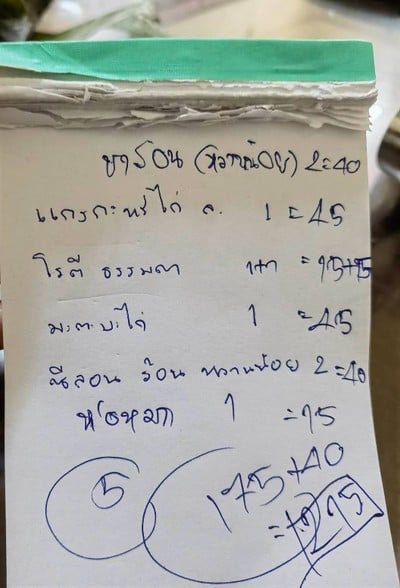 ชาร้อน (หวานน้อย) 2=40
แกงกะหรี่ไก่ ล. 1 = 45
โรตี ธรรมดา 1+1 = 15+15
มะตะบะไก่ 1 = 45
ร้อน หวานน้อย 2=40
ห่อหมก 1 = 15
5
175+40
=215